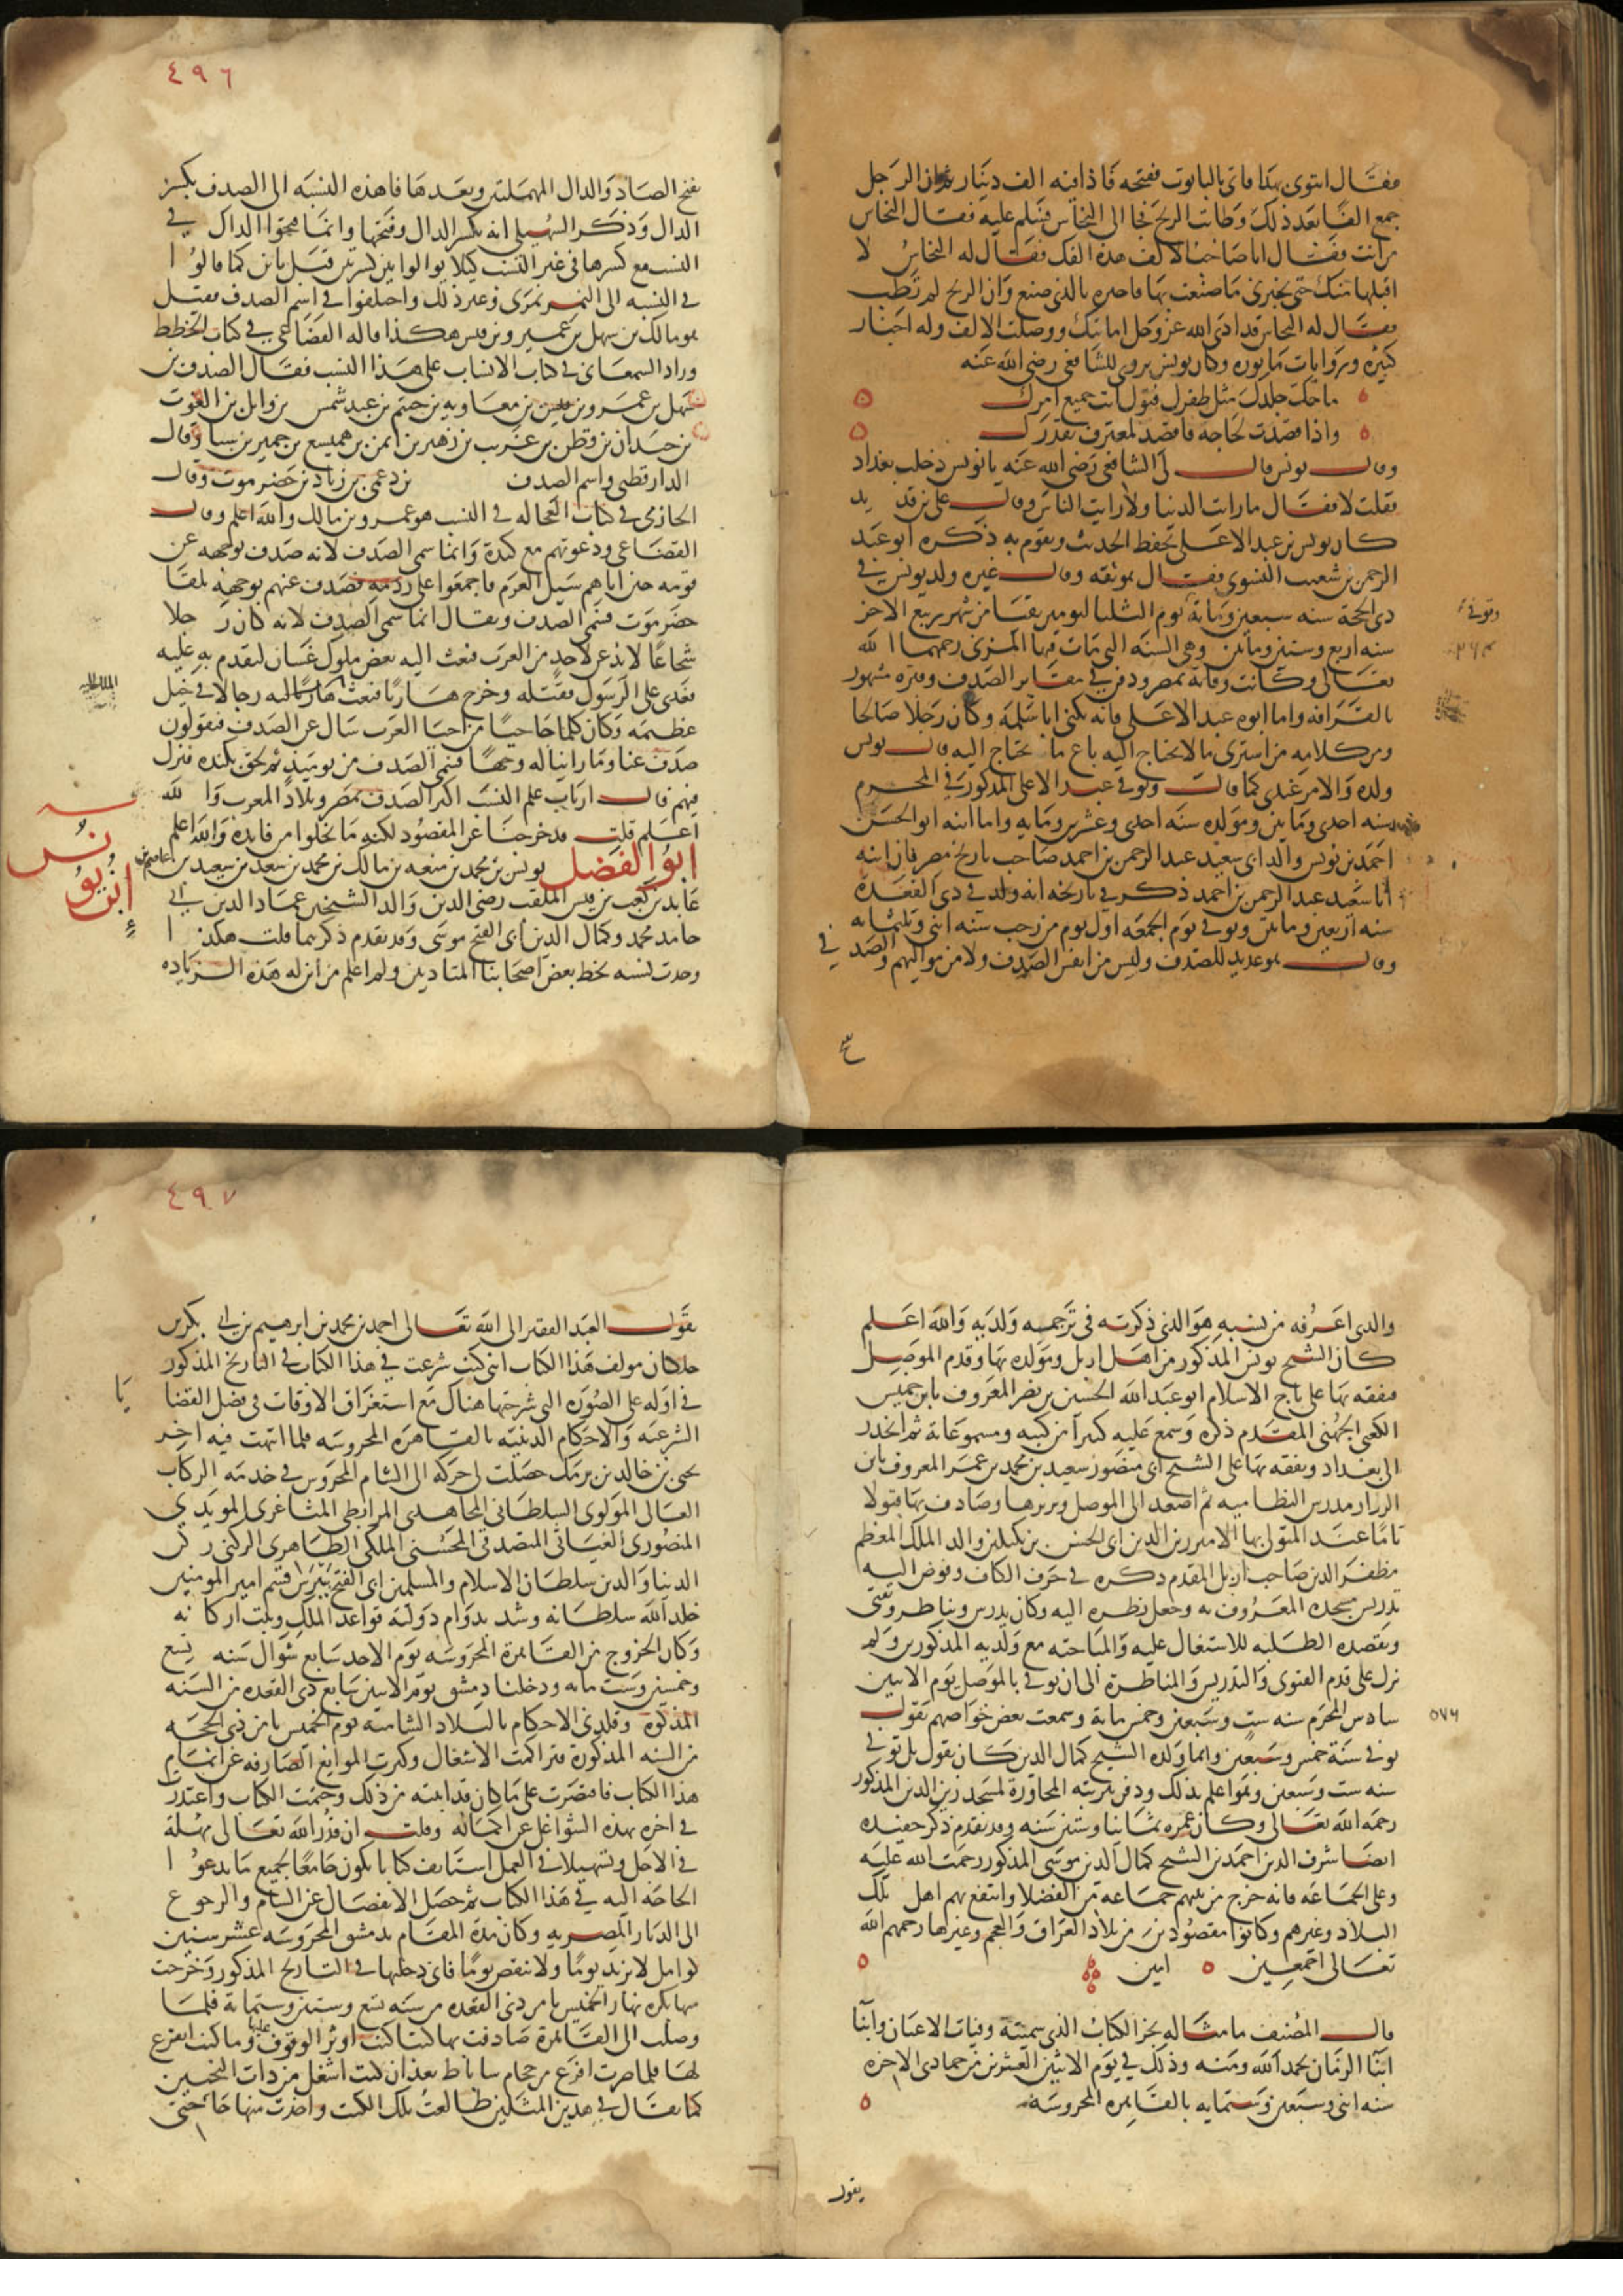 فقال ايتوني بهذا فاتي بالتابوت ففتحه فاذا فيه الف دينار ثم ان الرجل
جمع الفا بعد ذلك وطابت الريح فجا الى النحاس فسلم عليه فقال النحاس
من انت فقال انا صاحب الالف هذه الفك فقال له النحاس لا
اقبلها منك حتى تخبرني ما صنعت بها فاخبره بالذي صنع وان الريح لم تطب
فقال له النحاس قد ادى الله عز وجل امانتك ووصلت الالف وله اخبار
كثيره وروايات ماثوره وكان يونس يروي للشافعي رضي الله عنه
ما حك جلدك مثل ظفرك فتول انت جميع امرك
واذا قصدت لحاجه فاقصد لمعترف بقدرك
وقال يونس قال لي الشافعي رضي الله عنه يا يونس دخلت بغداد
فقلت لا فقال ما رايت الدنيا ولا رايت الناس وقال علي بن قديد
كان يونس بن عبد الاعلى يحفظ الحديث ويقوم به ذكره ابو عبد
الرحمن بن شعيب النسوي فقال هو ثقه وقال غيره ولد يونس في
ذي الحجة سنه سبعين ومائة يوم الثلثا ليومين بقيا من شهر ربيع الاخر
وتوفي
سنه اربع وستين ومايتين وهي السنه التي مات فيها المزني رحمهما الله
٢٦٤
تعالى وكانت وفاته بمصر ودفن في مقابر الصدف وقبره مشهور
بالقرافه واما ابوه عبد الاعلى فانه يكنى ابا سلمه وكان رجلا صالحا
ومن كلامه من اشترى ما لا يحتاج اليه باع ما يحتاج اليه قال يونس
ولده والامر عندي كما قال وتوفي عبد الاعلى المذكور في المحرم
سنه احدى ومايتين ومولده سنه احدى وعشرين ومايه واما ابنه ابو الحسن
احمد بن يونس والد ابي سعيد عبد الرحمن بن احمد صاحب تاريخ مصر فان ابنه
ابا سعيد عبد الرحمن بن احمد ذكر في تاريخه انه ولد في ذي القعدة
سنه اربعين ومايتين وتوفي يوم الجمعه اول يوم من رجب سنه اثني وثلثمايه
وقال هو عديد للصدف وليس من انفس الصدف ولا من مواليهم والصدفي
٤٩٦
بفتح الصاد والدال المهملتين وبعدها فا هذه النسبه الى الصدف بكسر
الدال وذكر السهيلي انه بكسر الدال وفتحها وانما فتحوا الدال في
النسب مع كسرها في غير النسب كيلا يوالوا بين كسرتين قبل ياين كما قالوا
في النسبه الى النمر نمري وغير ذلك واختلفوا في اسم الصدف فقيل
هو مالك بن سهل بن عمرو بن قيس هكذا قاله القضاعي في كتاب الخطط
وزاد السمعاني في كتاب الانساب على هذا النسب فقال الصدف بن
سهل بن عمرو بن قيس بن معاويه بن جشم بن عبد شمس بن وايل بن الغوث
بن حيدان بن قطن بن عريب بن زهير بن ايمن بن هميسع بن حمير بن سبا وقال
الدارقطني واسم الصدف بن دعمي بن زياد بن حضرموت وقال
الحازمي في كتاب العجاله في النسب هو عمرو بن مالك والله اعلم وقال
القضاعي ودعوتهم مع كندة وانما سمي الصدف لانه صدف بوجهه عن
قومه حين اتاهم سيل العرم فاجمعوا على ردمه فصدف عنهم بوجهه تلقا
حضرموت فسمي الصدف ويقال انما سمي الصدف لانه كان رجلا
شجاعا لا يذعن لاحد من العرب فبعث اليه بعض ملوك غسان ليقدم به عليه
فعدى على الرسول فقتله وخرج هاربا فبعث الملك اليه رجالا في خيل
عظيمه وكان كلما جا حيا من احيا العرب سال عن الصدف فيقولون
صدف عنا وما راينا له وجها فسمي الصدف من يوميذ ثم لحق بكنده فنزل
فيهم قال ارباب علم النسب اكثر الصدف بمصر وبلاد المغرب والله
اعلم قلت قد خرجنا عن المقصود لكنه ما يخلوا من فايدة والله اعلم
ابو الفضل يونس بن محمد بن منعه بن مالك بن محمد بن سعد بن سعيد بن عاصم بن
ابن يونس
عابد بن كعب بن قيس الملقب رضي الدين والد الشيخين عماد الدين ابي
حامد محمد وكمال الدين ابي الفتح موسى وقد تقدم ذكرهما قلت هكذا
وجدت نسبه بخط بعض اصحابنا المتادبين ولم اعلم من اين له هذه الزياده
والذي اعرفه من نسبه هو الذي ذكرته في ترجمه ولديه والله اعلم
كان الشيخ يونس المذكور من اهل اربل ومولده بها وقدم الموصل
فتفقه بها على تاج الاسلام ابو عبد الله الحسين بن نصر المعروف بابن خميس
الكعبي الجهني المقدم ذكره وسمع عليه كثيرا من كتبه ومسموعاته ثم انحدر
الى بغداد وتفقه بها على الشيخ ابي منصور سعيد بن محمد بن عمر المعروف بابن
الرزاز مدرس النظاميه ثم اصعد الى الموصل وتديرها وصادف بها قبولا
تاما عند المتولي بها الامير زين الدين ابي الحسن بن بكتكين والد الملك المعظم
مظفر الدين صاحب اربل المقدم ذكره في حرف الكاف وفوض اليه
تدريس مسجده المعروف به وجعل نظره اليه وكان يدرس ويناظر ويفتي
ويقصده الطلبه للاشتغال عليه والمباحثه مع ولديه المذكورين ولم
يزل على قدم الفتوى والتدريس والمناظرة الى ان توفي بالموصل يوم الاثنين
سادس المحرم سنه ست وسبعين وخمس ماية وسمعت بعض خواصهم يقول
٥٧٦
توفي سنة خمس وسبعين وانما ولده الشيخ كمال الدين كان يقول بل توفي
سنه ست وسبعين وهو اعلم بذلك ودفن بتربته المجاورة لمسجد زين الدين المذكور
رحمه الله تعالى وكان عمره ثمانيا وستين سنه وقد تقدم ذكر حفيده
ايضا شرف الدين احمد بن الشيخ كمال الدين موسى المذكور رحمت الله عليه
وعلى الجماعه فانه خرج من بيتهم جماعه من الفضلا وانتفع بهم اهل تلك
البلاد وغيرهم وكانوا مقصودين من بلاد العراق والعجم وغيرها رحمهم الله
تعالى اجمعين امين
قال المصنف ما مثاله نجز الكتاب الذي سميته وفيات الاعيان وانبا
ابنا الزمان بحمد الله ومنه وذلك في يوم الاثنين العشرين من جمادى الاخره
سنه اثني وسبعين وستمايه بالقاهره المحروسه
يقول
٤٩٧
يقول العبد الفقير الى الله تعالى احمد بن محمد بن ابرهيم بن ابي بكر بن
خلكان مولف هذا الكتاب انني كنت شرعت في هذا الكتاب في التاريخ المذكور
في اوله على الصوره التي شرحتها هناك مع استغراق الاوقات في فصل القضايا
الشرعيه والاحكام الدينيه بالقاهرة المحروسه فلما انتهت فيه اخر
يحيى بن خالد بن برمك حصلت لي حركة الى الشام المحروس في خدمه الركاب
العالي المولوي السلطاني المجاهدي المرابطي المثاغري المويدي
المنصوري الغياثي المتصدقي المحسني الملكي الظاهري الركني ركن
الدنيا والدين سلطان الاسلام والمسلمين ابي الفتح بيبرس قسيم امير المومنين
خلد الله سلطانه وشد بدوام دولته قواعد الملك وثبت اركانه
وكان الخروج من القاهرة المحروسه يوم الاحد سابع شوال سنه تسع
وخمسين وست مايه ودخلنا دمشق يوم الاثنين سابع ذي القعده من السنه
المذكوره وقلدني الاحكام بالبلاد الشاميه يوم الخميس ثامن ذي الحجه
من السنه المذكورة فتراكمت الاشغال وكثرت الموانع الصارفه عن اتمام
هذا الكتاب فاقتصرت على ما كان قد اثبته من ذلك وختمت الكتاب واعتذرت
في اخره بهذه الشواغل عن اكماله وقلت ان قدر الله تعالى مهلة
في الاجل وتسهيلا في العمل استانف كتابا يكون جامعا لجميع ما يدعوا
الحاجه اليه في هذا الكتاب ثم حصل الانفصال عن الشام والرجوع
الى الديار المصريه وكان مدة المقام بدمشق المحروسه عشر سنين
كوامل لا تزيد يوما ولا تنقص يوما فاني دخلتها في التاريخ المذكور وخرجت
منها بكره نهار الخميس ثامن ذي القعده من سنه تسع وستين وستماية فلما
وصلت الى القاهرة صادفت بها كتبا كنت اوثر الوقوف عليها وما كنت اتفرغ
لها فلما صرت افرغ من حجام ساباط بعد ان كنت اشغل من ذات النحيين
كما يقال في هذين المثلين طالعت تلك الكتب واخذت منها حاجتي